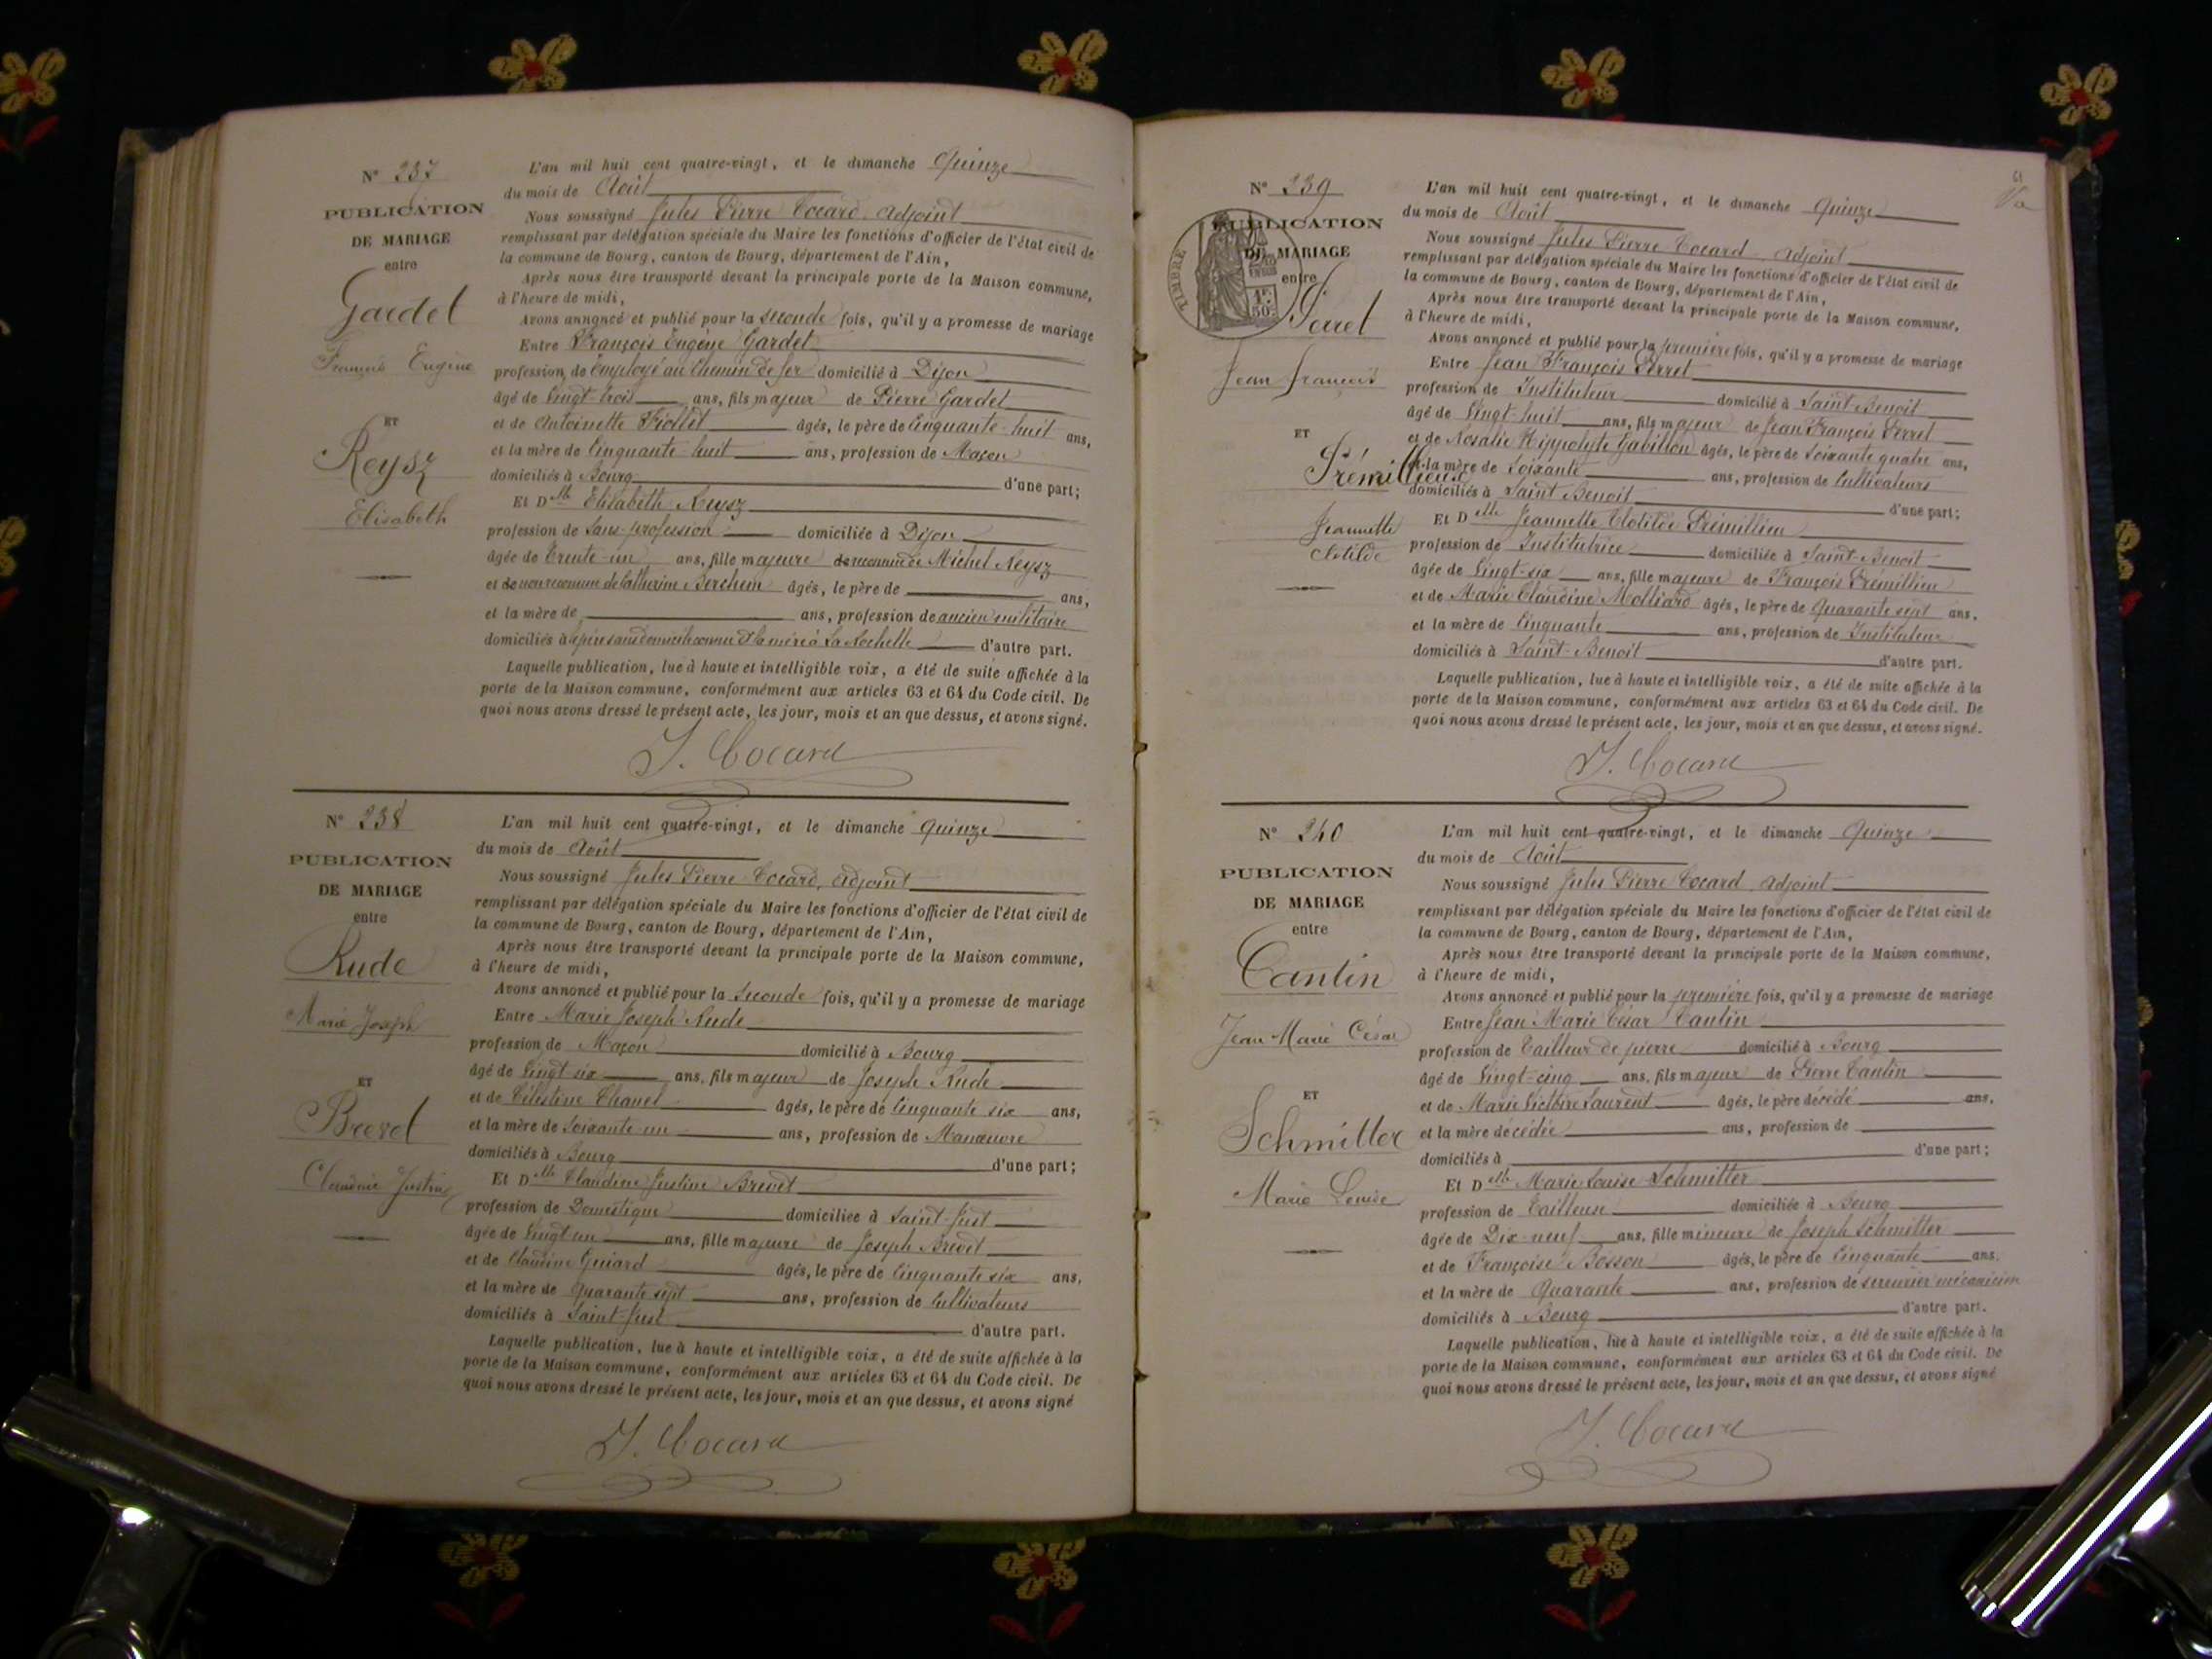 N° 237
PUBLICATION
DE MARIAGE
entre
Gardel
François Eugène
ET
Reysz
Elisabeth
L'an mil huit cent quatre-vingt, et le dimanche Quinze
du mois de Août
Nous soussigné Jules Pierre Cocard, adjoint
remplissant par délégation spéciale du Maire les fonctions d'officier de l'état civil de
la commune de Bourg, canton de Bourg, département de l'Ain,
Après nous être transporté devant la principale porte de la Maison commune,
à l'heure de midi,
Avons annoncé et publié pour la seconde fois, qu'il y a promesse de mariage
Entre François Eugène Gardel
profession de Employé au Chemin de fer domicilié à Dijon
âgé de Vingt-trois ans, fils majeur de Pierre Gardel
et de Antoinette Fiollet âgés, le père de Cinquante-huit ans,
et la mère de Cinquante-huit ans, profession de Maçon
domiciliés à Bourg d'une part;
Et Dlle Elisabeth Reysz
profession de Sans-profession domiciliée à Dijon
âgée de Trente-un ans, fille majeure de Michel Reysz
et de Catherine Berchem âgés, le père de ans,
et la mère de ans, profession de ancien militaire
domiciliés à le père sans domicile connu et la mère à La Rochelle d'autre part.
Laquelle publication, lue à haute et intelligible voix, a été de suite affichée à la
porte de la Maison commune, conformément aux articles 63 et 64 du Code civil. De
quoi nous avons dressé le présent acte, les jour, mois et an que dessus, et avons signé.
J. Cocard
N° 238
PUBLICATION
DE MARIAGE
entre
Rude
Marie Joseph
ET
Brevet
Claudine Justine
L'an mil huit cent quatre-vingt, et le dimanche Quinze
du mois de Août
Nous soussigné Jules Pierre Cocard, adjoint
remplissant par délégation spéciale du Maire les fonctions d'officier de l'état civil de
la commune de Bourg, canton de Bourg, département de l'Ain,
Après nous être transporté devant la principale porte de la Maison commune,
à l'heure de midi,
Avons annoncé et publié pour la seconde fois, qu'il y a promesse de mariage
Entre Marie Joseph Rude
profession de Maçon domicilié à Bourg
âgé de Vingt-six ans, fils majeur de Joseph Rude
et de Célestine Chanel âgés, le père de Cinquante six ans,
et la mère de Soixante-un ans, profession de Manœuvre
domiciliés à Bourg d'une part;
Et Dlle Claudine Justine Brevet
profession de Domestique domiciliée à Saint-Just
âgée de Vingt-un ans, fille majeure de Joseph Brevet
et de Claudine Guiard âgés, le père de Cinquante six ans,
et la mère de Quarante sept ans, profession de Cultivateurs
domiciliés à Saint-Just d'autre part.
Laquelle publication, lue à haute et intelligible voix, a été de suite affichée à la
porte de la Maison commune, conformément aux articles 63 et 64 du Code civil. De
quoi nous avons dressé le présent acte, les jour, mois et an que dessus, et avons signé
J. Cocard
N° 239
TIMBRE
1F.
50c
PUBLICATION
DE MARIAGE
entre
Perret
Jean François
ET
Prémillieux
Jeannette
Clotilde
L'an mil huit cent quatre-vingt, et le dimanche Quinze
du mois de Août
Nous soussigné Jules Pierre Cocard adjoint
remplissant par délégation spéciale du Maire les fonctions d'officier de l'état civil de
la commune de Bourg, canton de Bourg, département de l'Ain,
Après nous être transporté devant la principale porte de la Maison commune,
à l'heure de midi,
Avons annoncé et publié pour la première fois, qu'il y a promesse de mariage
Entre Jean François Perret
profession de Instituteur domicilié à Saint-Benoit
âgé de Vingt-huit ans, fils majeur de Jean François Perret
et de Rosalie Hippolyte Gabillon âgés, le père de Soixante quatre ans,
et la mère de Soixante ans, profession de Cultivateurs
domiciliés à Saint Benoit d'une part;
Et Delle Jeannette Clotilde Prémillieu
profession de Institutrice domiciliée à Saint-Benoit
âgée de Vingt-six ans, fille majeure de François Prémillieu
et de Marie Claudine Molliard âgés, le père de Quarante sept ans,
et la mère de Cinquante ans, profession de Instituteur
domiciliés à Saint-Benoit d'autre part.
Laquelle publication, lue à haute et intelligible voix, a été de suite affichée à la
porte de la Maison commune, conformément aux articles 63 et 64 du Code civil. De
quoi nous avons dressé le présent acte, les jour, mois et an que dessus, et avons signé.
J. Cocard
N° 240
PUBLICATION
DE MARIAGE
entre
Cantin
Jean Marie César
ET
Schmitter
Marie Louise
L'an mil huit cent quatre-vingt, et le dimanche Quinze
du mois de Août
Nous soussigné Jules Pierre Cocard adjoint
remplissant par délégation spéciale du Maire les fonctions d'officier de l'état civil de
la commune de Bourg, canton de Bourg, département de l'Ain,
Après nous être transporté devant la principale porte de la Maison commune,
à l'heure de midi,
Avons annoncé et publié pour la première fois, qu'il y a promesse de mariage
Entre Jean Marie César Cantin
profession de Tailleur de pierre domicilié à Bourg
âgé de Vingt-cinq ans, fils majeur de Pierre Cantin
et de Marie Victoire Laurent âgés, le père décédé ans,
et la mère décédée ans, profession de
domiciliés à d'une part;
Et Delle Marie Louise Schmitter
profession de Tailleuse domiciliée à Bourg
âgée de Dix-neuf ans, fille mineure de Joseph Schmitter
et de Françoise Bosson âgés, le père de Cinquante ans.
et la mère de Quarante ans, profession de serrurier mécanicien
domiciliés à Bourg d'autre part.
Laquelle publication, lue à haute et intelligible voix, a été de suite affichée à la
porte de la Maison commune, conformément aux articles 63 et 64 du Code civil. De
quoi nous avons dressé le présent acte, les jour, mois et an que dessus, et avons signé
J. Cocard